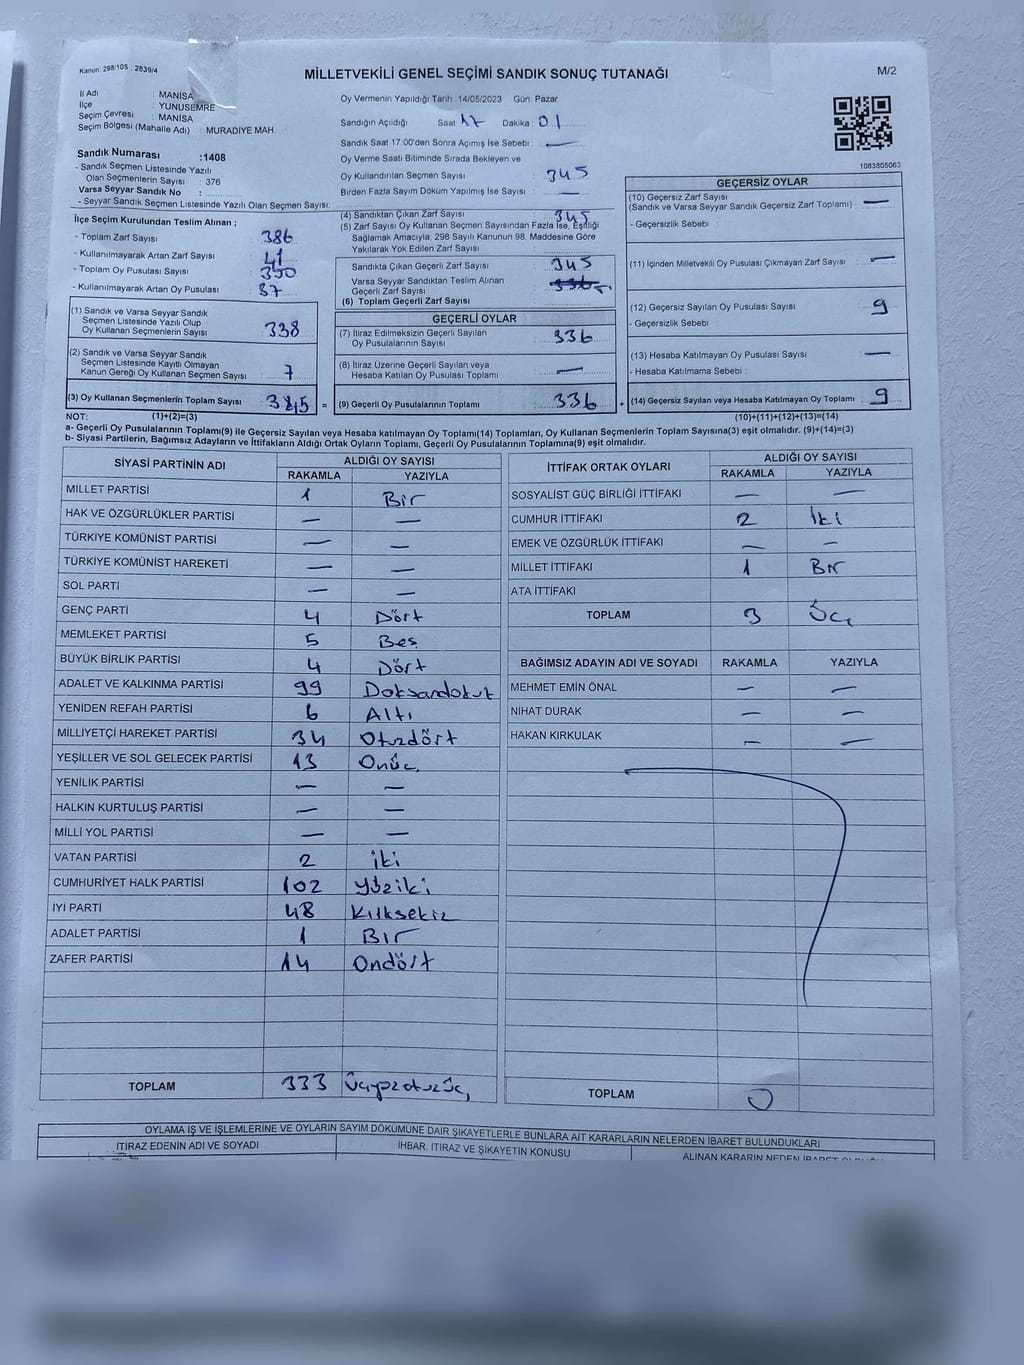 Kanun: 298/105 2839/4
MİLLETVEKİLİ GENEL SEÇİMİ SANDIK SONUÇ TUTANAĞI
M/2
İl Adı : MANİSA
İlçe : YUNUSEMRE
Seçim Çevresi : MANİSA
Seçim Bölgesi (Mahalle Adı) : MURADİYE MAH
Sandık Numarası :1408
- Sandık Seçmen Listesinde Yazılı
Olan Seçmenlerin Sayısı : 376
Varsa Seyyar Sandık No :
- Seyyar Sandık Seçmen Listesinde Yazılı Olan Seçmen Sayısı:
Oy Vermenin Yapıldığı Tarih :14/05/2023 Gün: Pazar
Sandığın Açıldığı Saat: 17 Dakika: 01
Sandık Saat 17:00'den Sonra Açımış İse Sebebi : —
Oy Verme Saati Bitiminde Sırada Bekleyen ve
Oy Kullandırılan Seçmen Sayısı : 345
Birden Fazla Sayım Döküm Yapılmış İse Sayısı : —
1083805063
İlçe Seçim Kurulundan Teslim Alınan ;
- Toplam Zarf Sayısı : 386
- Kullanılmayarak Artan Zarf Sayısı : 41
- Toplam Oy Pusulası Sayısı :
- Kullanılmayarak Artan Oy Pusulası : 37
(1) Sandık ve Varsa Seyyar Sandık
Seçmen Listesinde Yazılı Olup
Oy Kullanan Seçmenlerin Sayısı : 338
(2) Sandık ve Varsa Seyyar Sandık
Seçmen Listesinde Kayıtlı Olmayan
Kanun Gereği Oy Kullanan Seçmen Sayısı : 7
(3) Oy Kullanan Seçmenlerin Toplam Sayısı : 345 =
(4) Sandıktan Çıkan Zarf Sayısı : 345
(5) Zarf Sayısı Oy Kullanan Seçmen Sayısından Fazla İse, Eşitliği
Sağlamak Amacıyla; 298 Sayılı Kanunun 98. Maddesine Göre
Yakılarak Yok Edilen Zarf Sayısı :
Sandıkta Çıkan Geçerli Zarf Sayısı : 345
Varsa Seyyar Sandıktan Teslim Alınan
Geçerli Zarf Sayısı :
(6) Toplam Geçerli Zarf Sayısı :
GEÇERLİ OYLAR
(7) İtiraz Edilmeksizin Geçerli Sayılan
Oy Pusulalarının Sayısı : 336
(8) İtiraz Üzerine Geçerli Sayılan veya
Hesaba Katılan Oy Pusulası Toplamı : —
(9) Geçerli Oy Pusulalarının Toplamı : 336 +
GEÇERSİZ OYLAR
(10) Geçersiz Zarf Sayısı
(Sandık ve Varsa Seyyar Sandık Geçersiz Zarf Toplamı) : —
- Geçersizlik Sebebi :
(11) İçinden Milletvekili Oy Pusulası Çıkmayan Zarf Sayısı : —
(12) Geçersiz Sayılan Oy Pusulası Sayısı : 9
- Geçersizlik Sebebi :
(13) Hesaba Katılmayan Oy Pusulası Sayısı : —
- Hesaba Katılmama Sebebi :
(14) Geçersiz Sayılan veya Hesaba Katılmayan Oy Toplamı : 9
NOT: (1)+(2)=(3) (10)+(11)+(12)+(13)=(14)
a- Geçerli Oy Pusulalarının Toplamı(9) ile Geçersiz Sayılan veya Hesaba katılmayan Oy Toplamı(14) Toplamları, Oy Kullanan Seçmenlerin Toplam Sayısına(3) eşit olmalıdır. (9)+(14)=(3)
b- Siyasi Partilerin, Bağımsız Adayların ve İttifakların Aldığı Ortak Oyların Toplamı, Geçerli Oy Pusulalarının Toplamına(9) eşit olmalıdır.
SİYASİ PARTİNİN ADI ALDIĞI OY SAYISI
RAKAMLA YAZIYLA
MİLLET PARTİSİ 1 Bir
HAK VE ÖZGÜRLÜKLER PARTİSİ — —
TÜRKİYE KOMÜNİST PARTİSİ — —
TÜRKİYE KOMÜNİST HAREKETİ — —
SOL PARTİ — —
GENÇ PARTİ 4 Dört
MEMLEKET PARTİSİ 5 Beş
BÜYÜK BİRLİK PARTİSİ 4 Dört
ADALET VE KALKINMA PARTİSİ 99 Doksandokuz
YENİDEN REFAH PARTİSİ 6 Altı
MİLLİYETÇİ HAREKET PARTİSİ 34 Otuzdört
YEŞİLLER VE SOL GELECEK PARTİSİ 13 Onüç
YENİLİK PARTİSİ — —
HALKIN KURTULUŞ PARTİSİ — —
MİLLİ YOL PARTİSİ — —
VATAN PARTİSİ 2 iki
CUMHURİYET HALK PARTİSİ 102 Yüziki
İYİ PARTİ 48 Kırksekiz
ADALET PARTİSİ 1 Bir
ZAFER PARTİSİ 14 Ondört
TOPLAM 333 üçyüzotuzüç
İTTİFAK ORTAK OYLARI ALDIĞI OY SAYISI
RAKAMLA YAZIYLA
SOSYALİST GÜÇ BİRLİĞİ İTTİFAKI — —
CUMHUR İTTİFAKI 2 İki
EMEK VE ÖZGÜRLÜK İTTİFAKI — —
MİLLET İTTİFAKI 1 Bir
ATA İTTİFAKI
TOPLAM 3 Üç
BAĞIMSIZ ADAYIN ADI VE SOYADI RAKAMLA YAZIYLA
MEHMET EMİN ÖNAL — —
NİHAT DURAK — —
HAKAN KIRKULAK — —
TOPLAM 0
OYLAMA İŞ VE İŞLEMLERİNE VE OYLARIN SAYIM DÖKÜMÜNE DAİR ŞİKAYETLERLE BUNLARA AİT KARARLARIN NELERDEN İBARET BULUNDUKLARI
İTİRAZ EDENİN ADI VE SOYADI İHBAR, İTİRAZ VE ŞİKAYETİN KONUSU ALINAN KARARIN NEDEN İBARET OLDUĞU